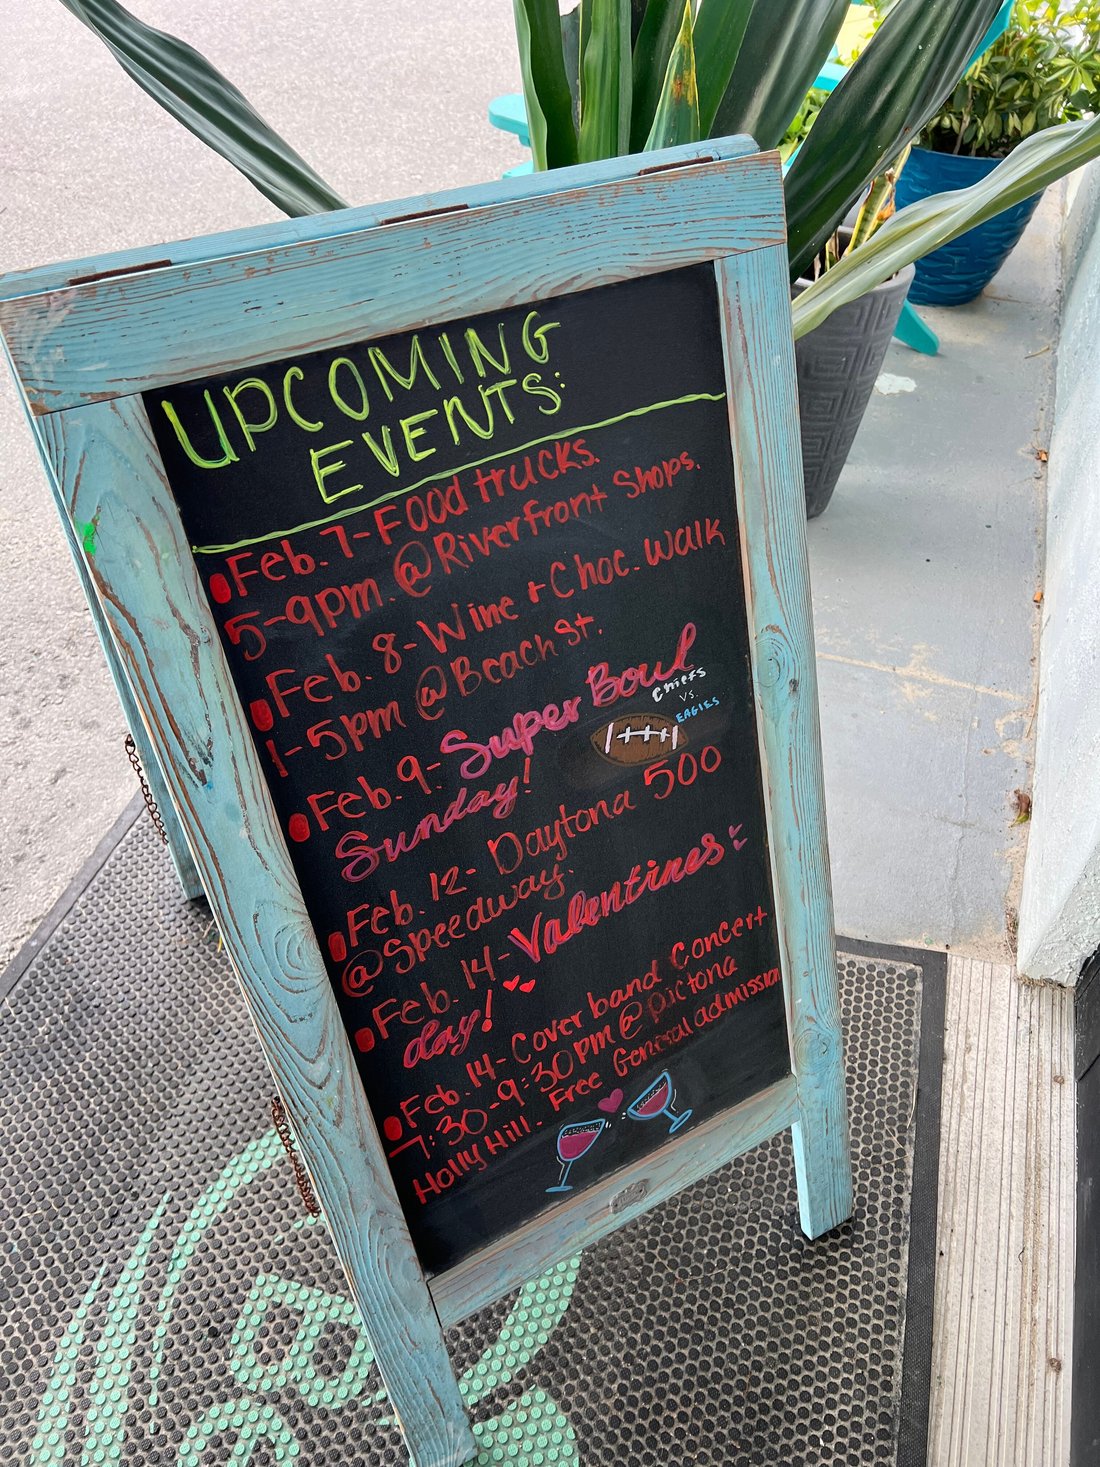 UPCOMING
EVENTS:
Feb. 7-Food trucks.
5-9pm. @Riverfront Shops.
Feb. 8-Wine + Choc. Walk
1-5pm @Beach St.
Feb. 9- Super Bowl
Chiefs
vs.
EAGLES
Sunday!
Feb. 12- Daytona 500
@Speedway.
Feb. 14- Valentines
day!
Feb. 14- Cover band Concert
7:30-9:30pm @ Pictona
Holly Hill. Free General admission